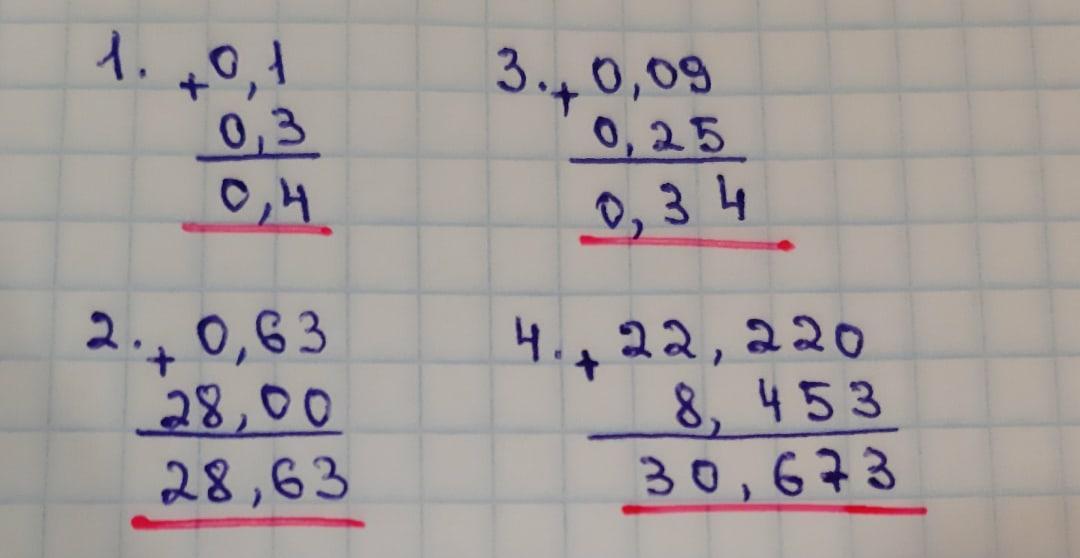 1. + 0,1
0,3
0,4
2. + 0,63
28,00
28,63
3. + 0,09
0,25
0,34
4. + 22,220
8,453
30,673